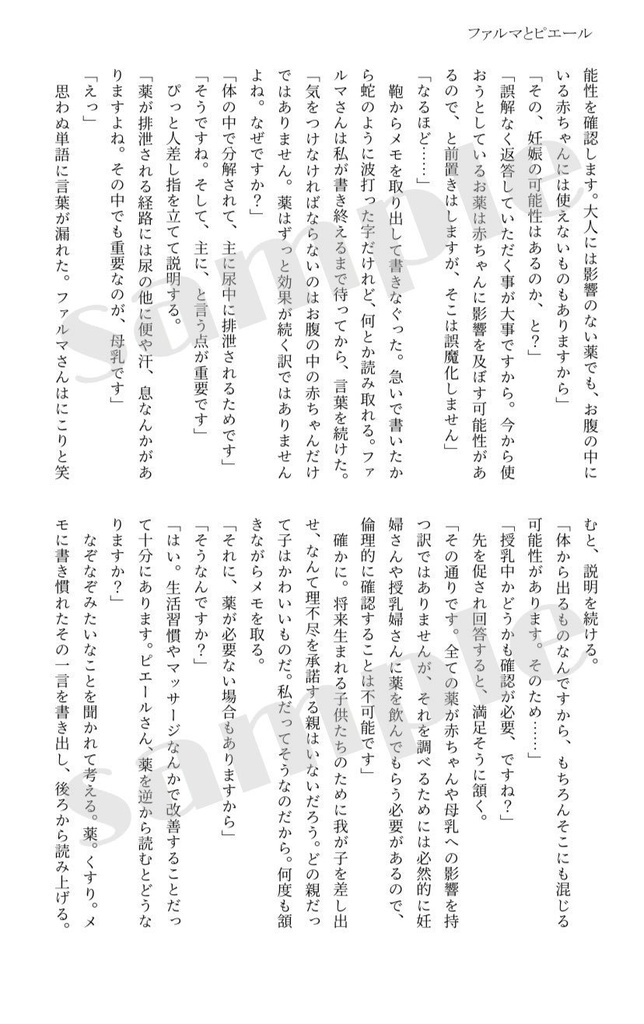 ファルマとピエール
能性を確認します。大人には影響のない薬でも、お腹の中に
いる赤ちゃんには使えないものもありますから」
「その、妊娠の可能性はあるのか、と?」
「誤解なく返答していただく事が大事ですから。今から使
おうとしているお薬は赤ちゃんに影響を及ぼす可能性があ
るので、と前置きはしますが、そこは誤魔化しません」
「なるほど……」
鞄からメモを取り出して書きなぐった。急いで書いたか
ら蛇のように波打った字だけれど、何とか読み取れる。ファ
ルマさんは私が書き終えるまで待ってから、言葉を続けた。
「気をつけなければならないのはお腹の中の赤ちゃんだけ
ではありません。薬はずっと効果が続く訳ではありません
よね。なぜですか?」
「体の中で分解されて、主に尿中に排泄されるためです」
「そうですね。そして、主に、と言う点が重要です」
ぴっと人差し指を立てて説明する。
「薬が排泄される経路には尿の他に便や汗、息なんかがあ
りますよね。その中でも重要なのが、母乳です」
「えっ」
思わぬ単語に言葉が漏れた。ファルマさんはにこりと笑
むと、説明を続ける。
「体から出るものなんですから、もちろんそこにも混じる
可能性があります。そのため……」
「授乳中かどうかも確認が必要、ですね?」
先を促され回答すると、満足そうに頷く。
「その通りです。全ての薬が赤ちゃんや母乳への影響を持
つ訳ではありませんが、それを調べるためには必然的に妊
婦さんや授乳婦さんに薬を飲んでもらう必要があるので、
倫理的に確認することは不可能です」
確かに。将来生まれる子供たちのために我が子を差し出
せ、なんて理不尽を承諾する親はいないだろう。どの親だっ
て子はかわいいものだ。私だってそうなのだから。何度も頷
きながらメモを取る。
「それに、薬が必要ない場合もありますから」
「そうなんですか?」
「はい。生活習慣やマッサージなんかで改善することだっ
て十分にあります。ピエールさん、薬を逆から読むとどうな
りますか?」
なぞなぞみたいなことを聞かれて考える。薬。くすり。メ
モに書き慣れたその一言を書き出し、後ろから読み上げる。
sample
sample